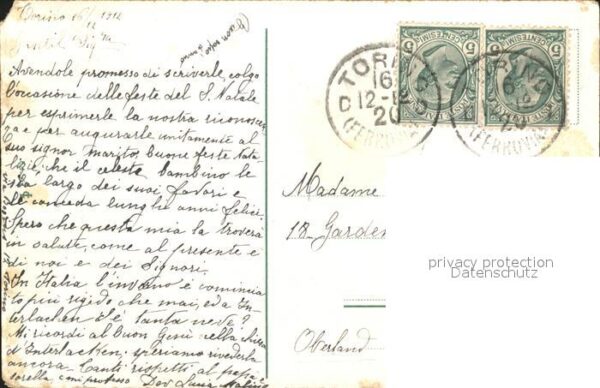 Torino 16/12 1912
Avendole promesso di scriverle colgo
l'occasione delle feste del S. Natale
per esprimerle la nostra riconoscen
za e per augurarle unitamente al
suo signor marito, buone feste Nata
lizie, che il celeste bambino le
sia largo dei suoi favori e
le conceda lunghi anni felici.
Spero che questa mia la troverà
in salute, come al presente è
di noi e dei Signori.
In Italia l'inverno è comincia
to più rigido che mai, ed a In-
terlachen c'è tanta neve?
Mi ricordi al Buon Gesù nella chiesa
d'Interlachen, speriamo rivederla
ancora. Tanti rispetti al papà
sorella
TORINO
16
12-12
20
(FERROVIA)
TORINO
(FERROVIA)
CENTESIMI
5
CENTESIMI
5
Madame
18 Garden
Oberland
privacy protection
Datenschutz